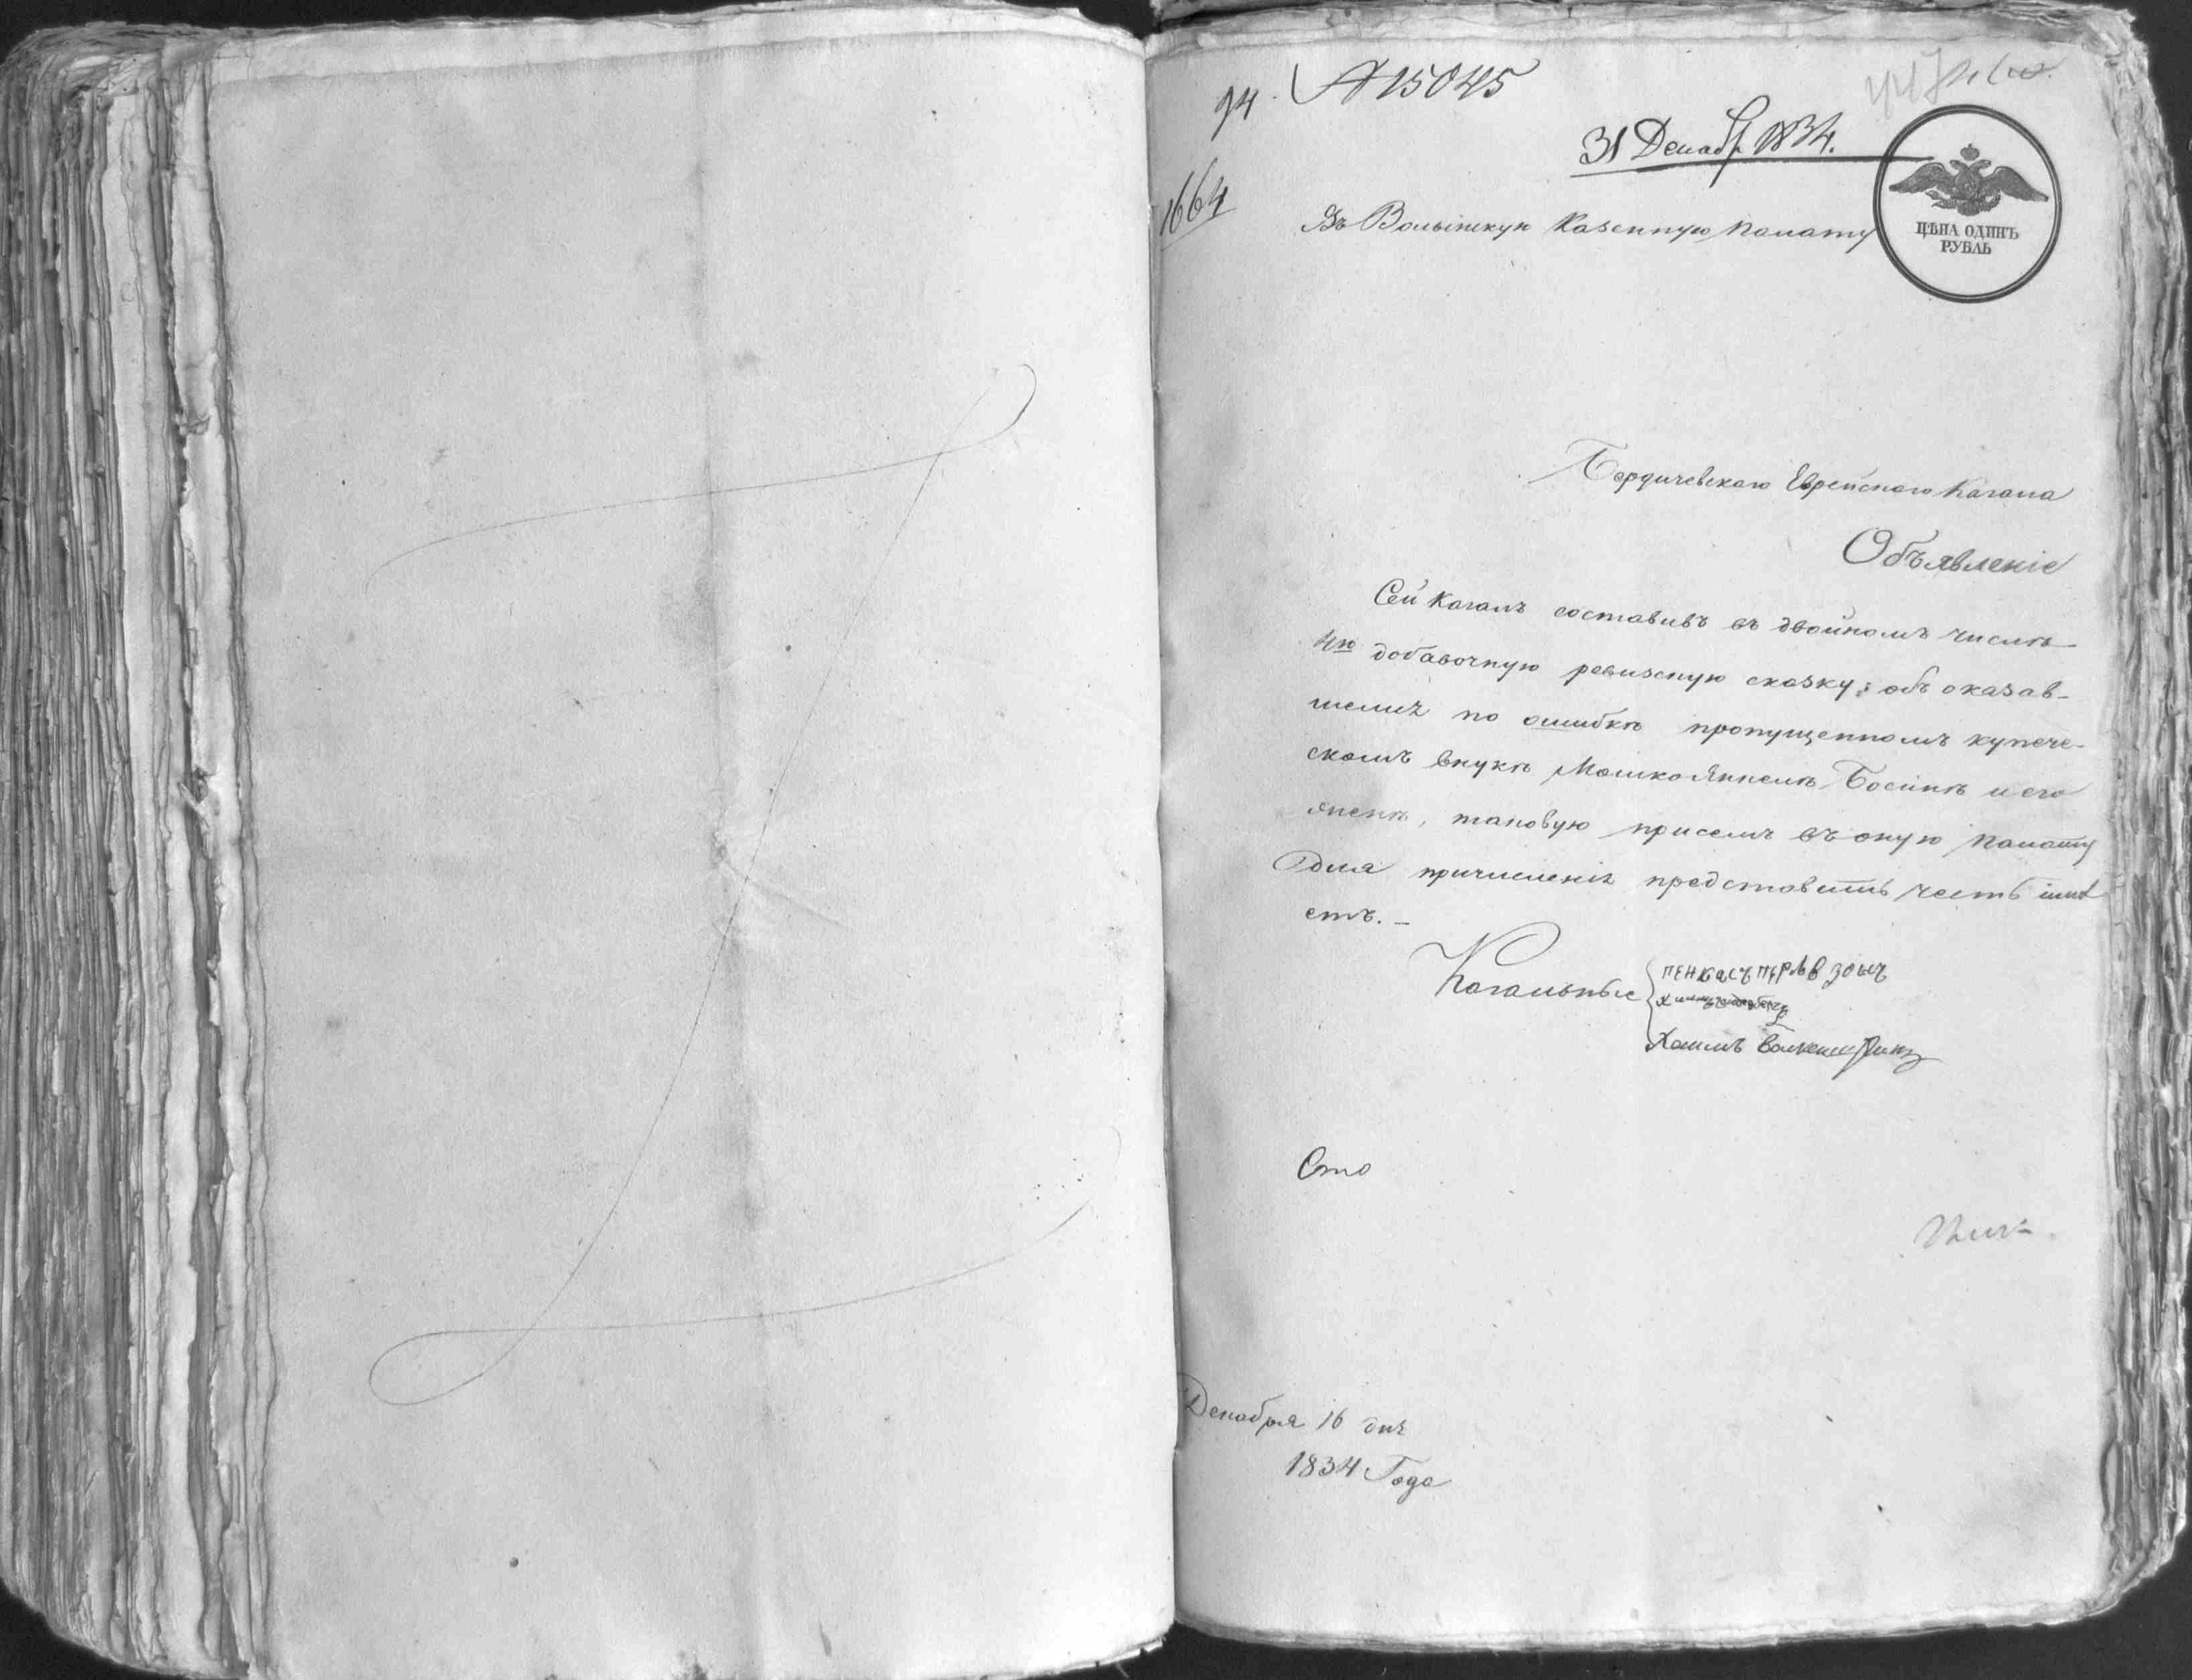 94.
№ 15045
447
31 Декабр 1834.
1664
ЦѢНА ОДИНЪ
РУБЛЬ
Въ Волынскую Казенную Палату
Бердичевскаго Еврейскаго Кагала
Объявленіе
Сей Кагалъ составивъ въ двойномъ числѣ
4ю добавочную ревизскую сказку; объ оказав-
шемся по ошибкѣ пропущенномъ купече-
скомъ внукѣ Мошко Янкелѣ и его
женѣ, таковую присемъ въ оную Палату
для причисленія представить честь имѣ
етъ. –
Кагальные
Хаимъ
Сто
Декабря 16 дня
1834 Года